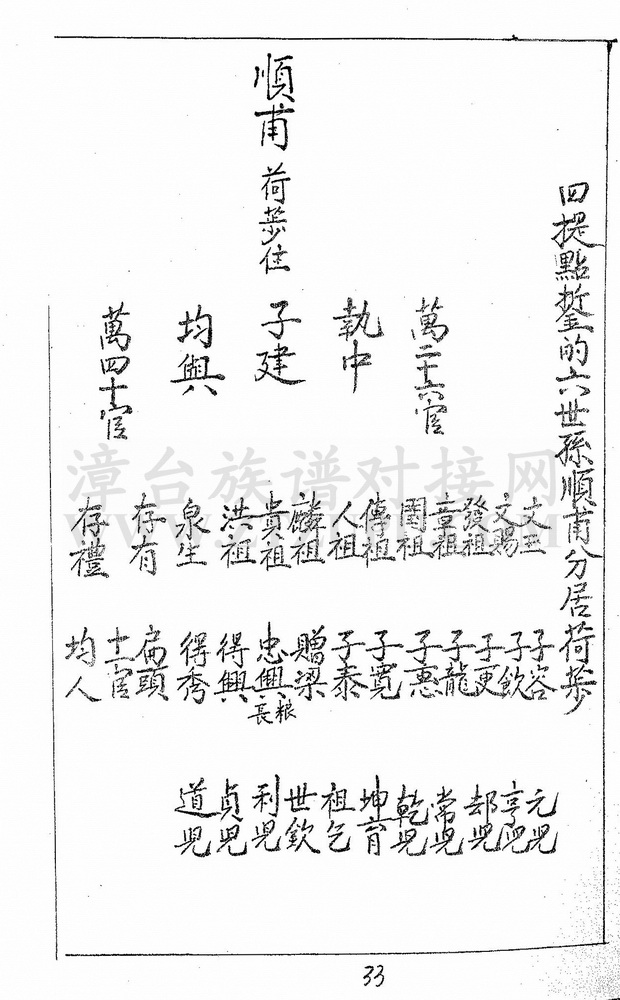 四提點鏨的六世孫順甫分居荷步
順甫 荷步住
萬二十六官
執中
子建
均興
萬四十官
文玉
文賜
發祖
章祖
團祖
傳祖
人祖
麟祖
貴祖
洪祖
泉生
存有
存禮
子容
子欽
子更
子龍
子惠
子寬
子泰
贈梁
忠興 長粮
得興
得秀
扁頭
十一官
均人
元兒
亨兒
却兒
常兒
乾兒
坤育
祖乞
世欽
利兒
貞兒
道兒
漳台族谱对接网
33